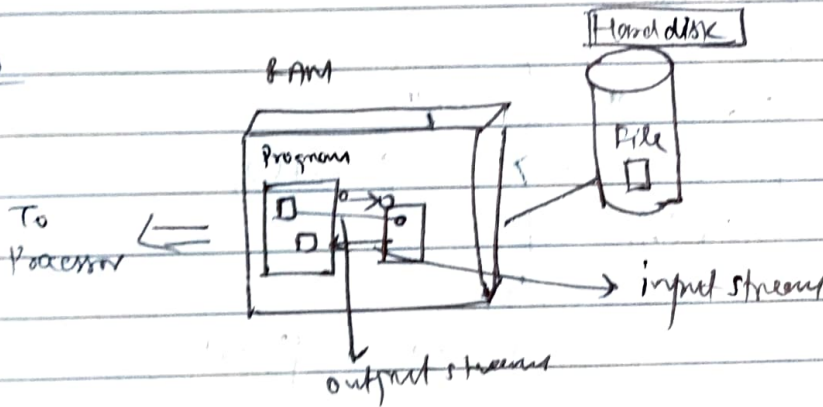 Hard disk
RAM
Program
File
To
Processor
input stream
output stream